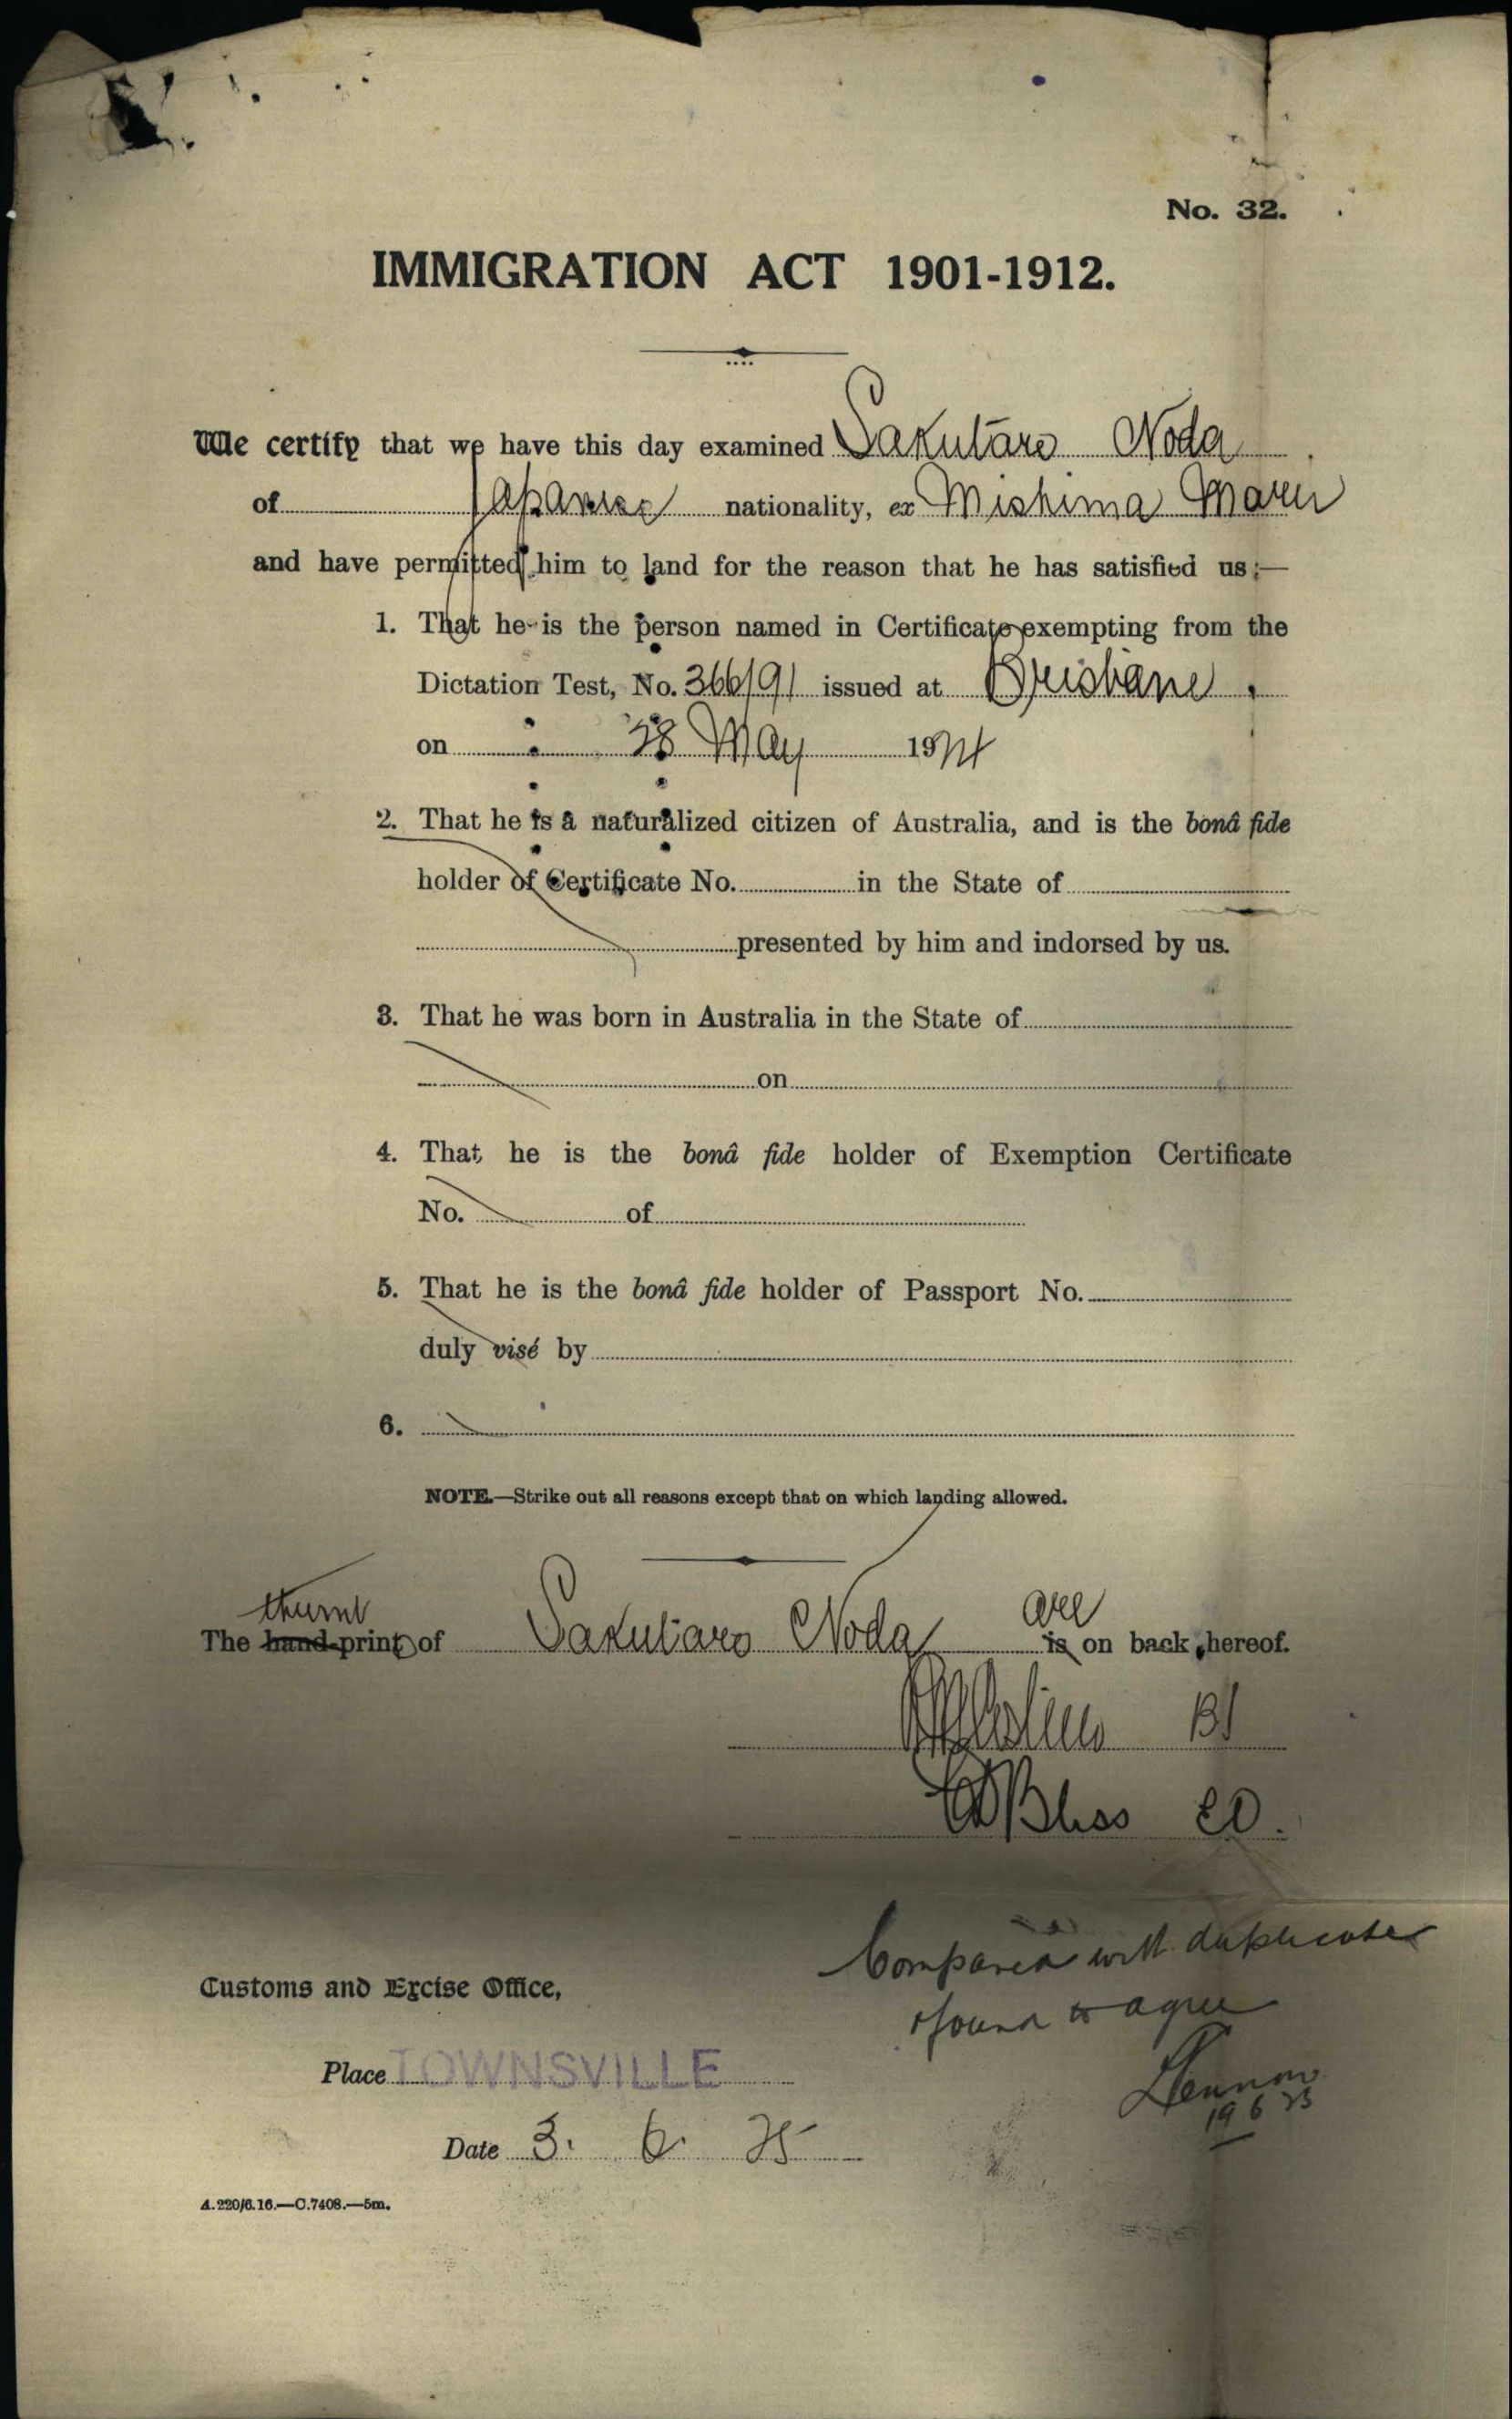 No. 32.
IMMIGRATION ACT 1901-1912.
We certify that we have this day examined Sakutaro Noda
of Japanese nationality, ex Mishima Maru
and have permitted him to land for the reason that he has satisfied us:—
1. That he is the person named in Certificate exempting from the
Dictation Test, No. 366/91 issued at Brisbane
on 28 May 1924
2. That he is a naturalized citizen of Australia, and is the bonâ fide
holder of Certificate No. in the State of
presented by him and indorsed by us.
3. That he was born in Australia in the State of
on
4. That he is the bonâ fide holder of Exemption Certificate
No. of
5. That he is the bonâ fide holder of Passport No.
duly visé by
6.
NOTE.—Strike out all reasons except that on which landing allowed.
thumb are
The hand-print of Sakutaro Noda is on back hereof.
Bliss
Compared with duplicate
& found to agree
Customs and Excise Office,
Place TOWNSVILLE
19 6 25
Date 3. 6. 25
A.220/6.16.—C.7408.—5m.